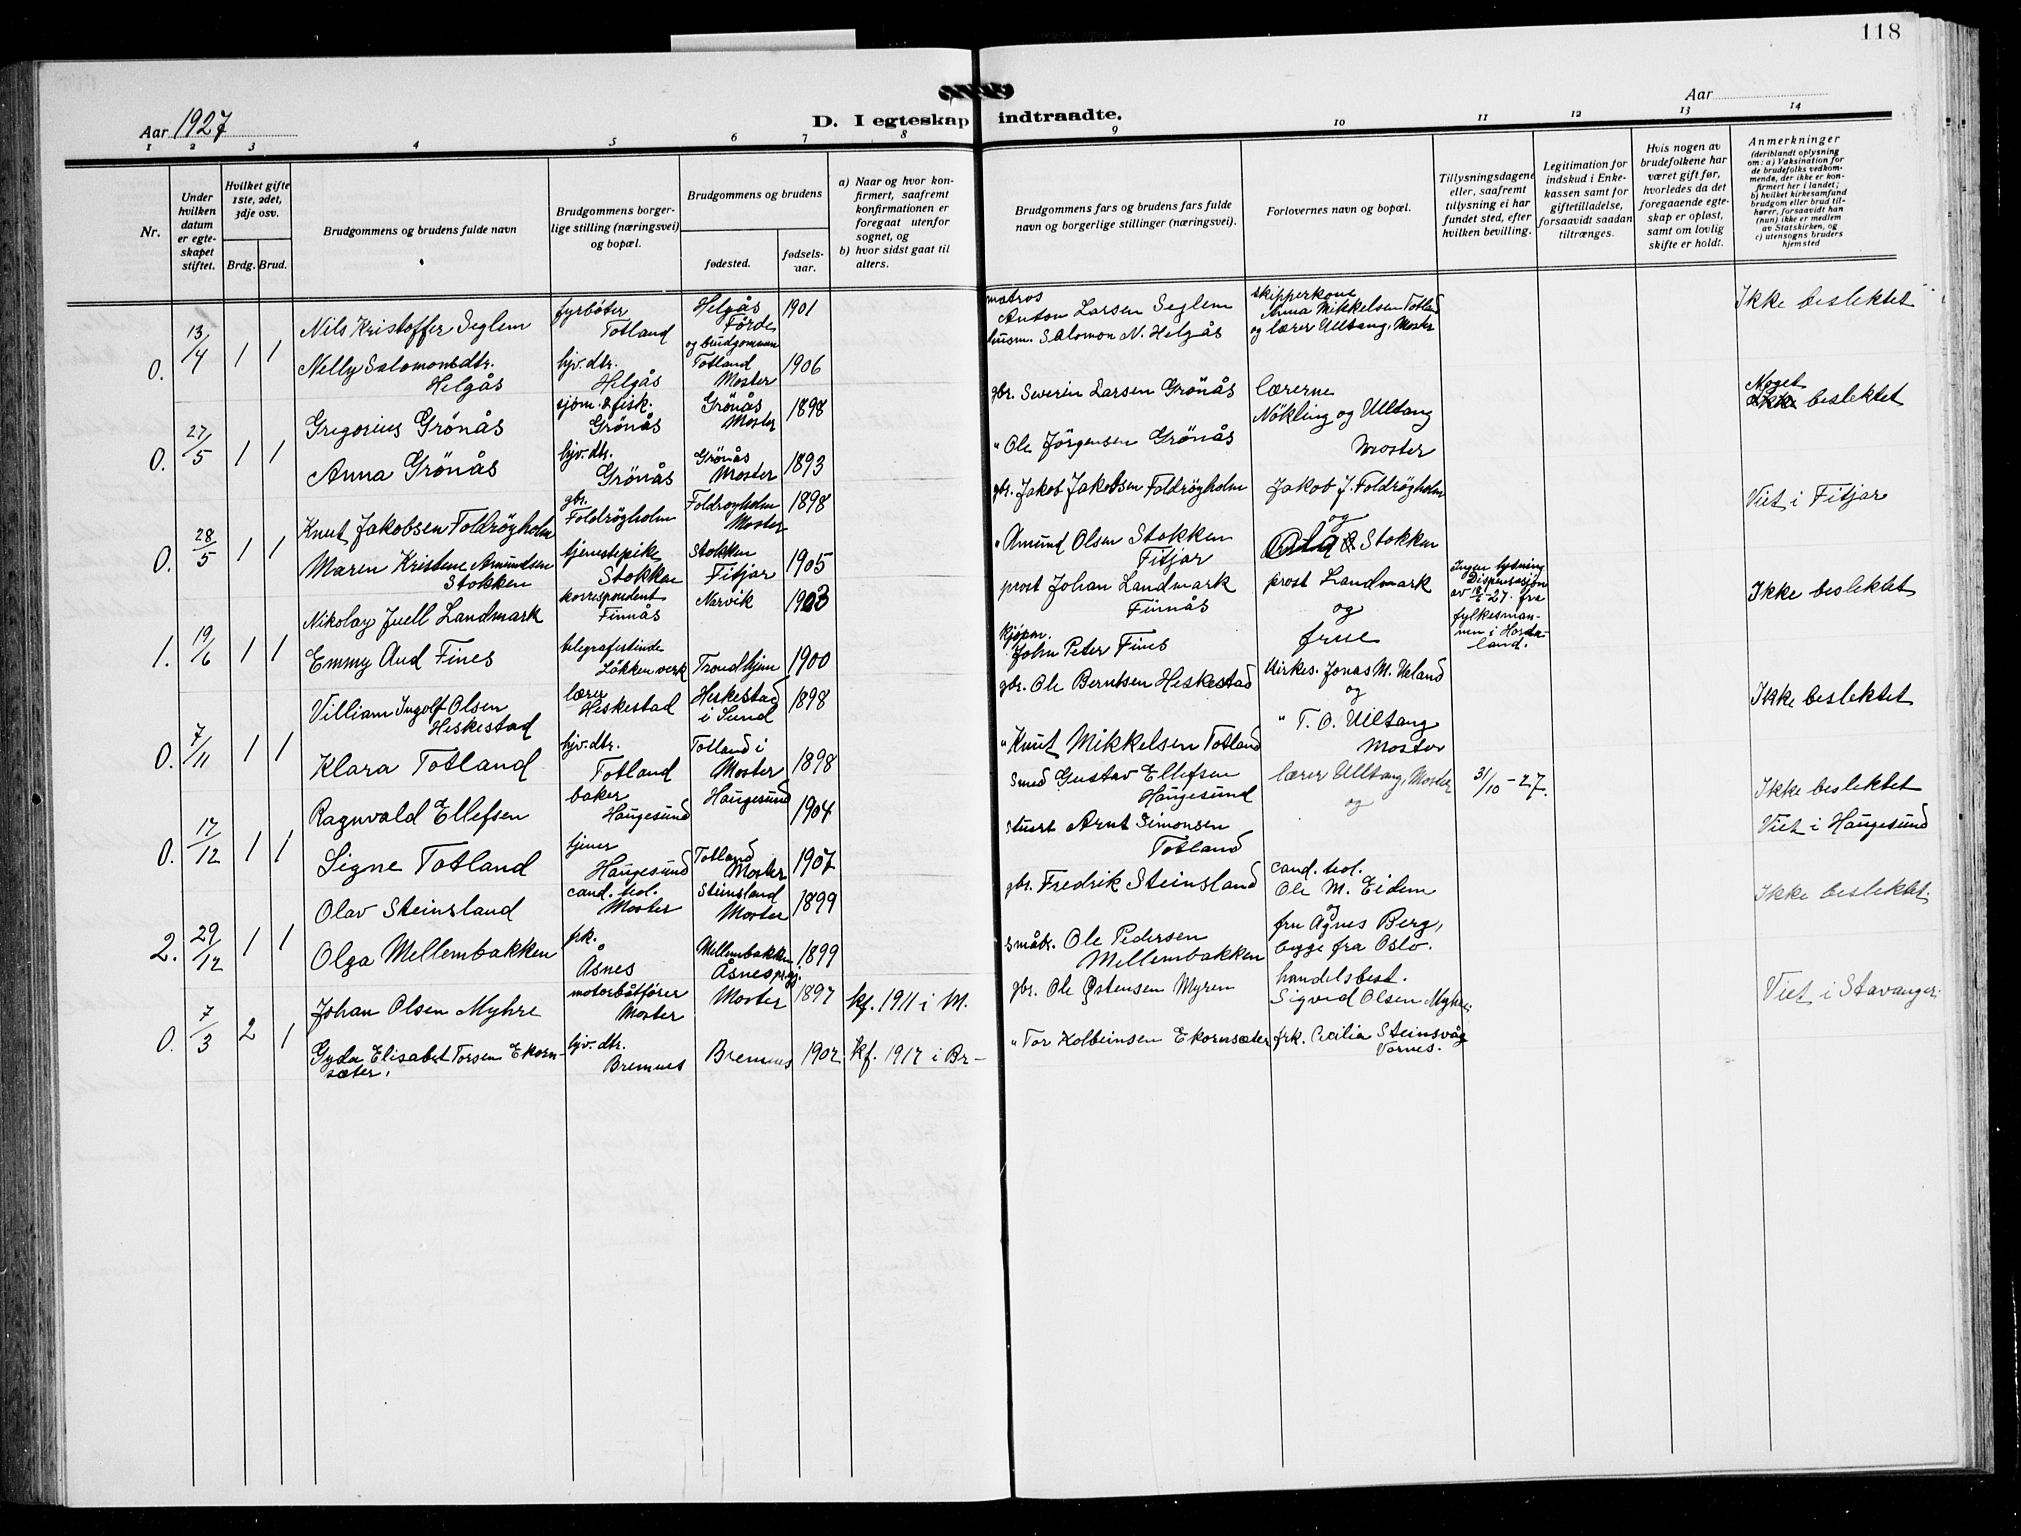 118
Aar 1927
D. I egteskap indtraadte.
Aar
1 2 3 4 5 6 7 8 9 10 11 12 13 14
Nr.
Under hvilken datum er egteskapet stiftet.
Hvilket gifte 1ste, 2det, 3dje osv.
Brdg. Brud.
Brudgommens og brudens fulde navn
Brudgommens borgerlige stilling (næringsvei) og bopæl.
Brudgommens og brudens
fødested.
fødselsaar.
a) Naar og hvor konfirmert, saafremt konfirmationen er foregaat utenfor sognet, og
b) hvor sidst gaat til alters.
Brudgommens fars og brudens fars fulde navn og borgerlige stillinger (næringsvei).
Forlovernes navn og bopæl.
Tillysningsdagene eller, saafremt tillysning ei har fundet sted, efter hvilken bevilling.
Legitimation for indskud i Enkekassen samt for giftetilladelse, forsaavidt saadan tiltrænges.
Hvis nogen av brudefolkene har været gift før, hvorledes da det foregaaende egteskap er opløst, samt om lovlig skifte er holdt.
Anmerkninger
(deriblandt oplysning om: a) Vaksination for de brudefolks vedkommende, der ikke er konfirmert her i landet; b) hvilket kirkesamfund brudgom eller brud tilhører, forsaavidt han (hun) ikke er medlem av Statskirken, og c) utensogns bruders hjemsted
0. 13/4 1 1
Nils Kristoffer Seglem fyrbøter Totland Helgås Förde 1901
matros Anton Larsen Seglem
skipperkone Anna Mikkelsen Totland og lærer Ulltang, Moster
Ikke beslektet
og brudgommen
Nelly Salomonsdtr. Helgås hjv. dtr. Helgås Totland Moster 1906
husm. Salomon N. Helgås
0. 27/5 1 1
Gregorius Grönås sjøm. & fisk. Grönås Grönås Moster 1898
gbr. Severin Larsen Grönås
lærerne Nökling og Ulltang Moster
Noget beslektet
Anna Grönås hjv. dtr. Grönås Grönås Moster 1893
" Ole Jörgensen Grönås
0. 28/5 1 1
Knut Jakobsen Foldröyholm gbr. Foldröyholm Foldroyholm Moster 1898
gbr. Jakob Jakobsen Foldröyholm
Jakob J. Foldröyholm og
Viet i Fitjar
Maren Kristene Amundsen Stokken tjenestepike Stokken Stokken Fitjar 1905
" Amund Olsen Stokken Fitjar
Stokken
1. 19/6 1 1
Nikolay Juell Landmark korrespondent Finnås Narvik 1903
prost Johan Landmark Finnås
prost Landmark og frue
Ingen lysning Dispensasjon av 18/6-27. fra fylkesmannen i Hordaland.
Ikke beslektet
Emmy Aud Fines telegrafistinde Løkken verk Trondhjem 1900
kjøpm. John Peter Fines
0. 7/11 1 1
Villiam Ingolf Olsen Heskestad lærer Heskestad Heskestad i Lund 1898
gbr. Ole Berntsen Heskestad
kirkes. Jonas M. Ueland og
" T. O. Ulltang Moster
Ikke beslektet
Klara Totland hjv. dtr. Totland Totland i Moster 1898
" Knut Mikkelsen Totland
0. 17/12 1 1
Ragnvald Ellefsen baker Haugesund Haugesund 1904
smed Gustav Ellefsen Haugesund
lærer Ulltang, Moster og
31/10-27.
Ikke beslektet
Viet i Haugesund
Signe Totland tjener Haugesund Totland Moster 1907
stuert Arnt Simonsen Totland
2. 29/12 1 1
Olav Steinsland cand. teol. Moster Steinsland Moster 1899
gbr. Fredrik Steinsland
cand. teol. Ole M. Eidem og
fru Agnes Berg, begge fra Oslo.
Ikke beslektet.
Olga Mellembakken frk. Åsnes Mellembakken Åsnes prgj. 1899
småbr. Ole Pedersen Mellembakken
0. 7/3 2 1
Johan Olsen Myhre motorbåtfører Moster Moster 1897 kf. 1911 i M.
gbr. Ole Østensen Myren
handelsbest. Sigvid Olsen Myhre.
Viet i Stavanger.
Gyda Elisabet Torsen Ekornsæter. hjv. dtr. Bremnes Bremnes 1902 kf. 1917 i Br-
" Tor Kolbeinsen Ekornsæter
frk. Cecilia Steinsvåg Vornes.